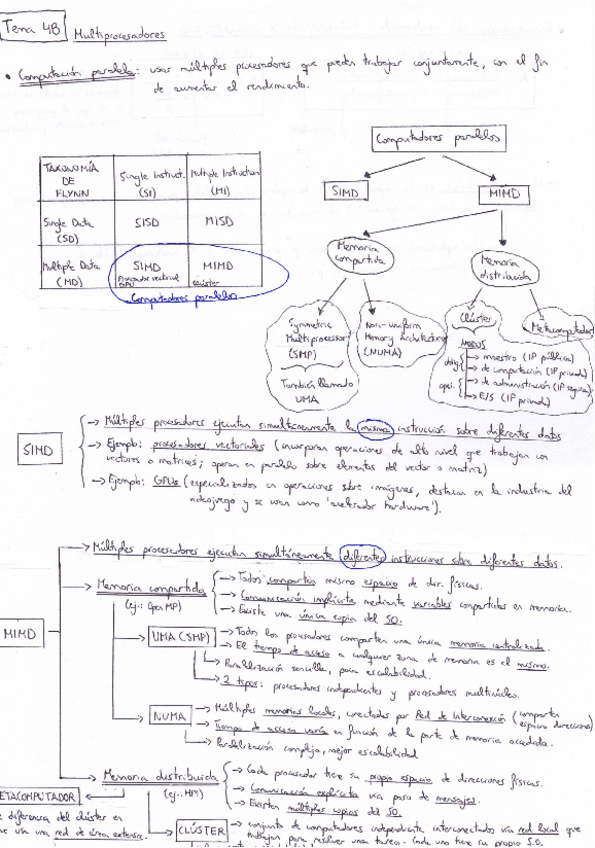 Tema 4B Multiprocesadores
• Computación paralela: usar múltiples procesadores que puedan trabajar conjuntamente, con el fin
de aumentar el rendimiento.
Computadores paralelos
SIMD
MIMD
Memoria compartida
Memoria distribuida
Symmetric Multiprocessor (SMP)
También llamado UMA
Non-uniform Memory Architecture (NUMA)
Clúster
NODOS
oblig.
→ maestro (IP pública)
→ de computación (IP privada)
opci.
→ de administración (IP segura)
→ E/S (IP privada)
Metacomputador
TAXONOMÍA DE FLYNN
Single Instruct. (SI)
Multiple Instruction (MI)
Single Data (SD)
SISD
MISD
Multiple Data (MD)
SIMD
Procesador vectorial
GPU
MIMD
clúster
Computadores paralelos
SIMD
→ Múltiples procesadores ejecutan simultáneamente la misma instrucción sobre diferentes datos
→ Ejemplo: procesadores vectoriales (incorporan operaciones de alto nivel que trabajan con
vectores o matrices; operan en paralelo sobre elementos del vector o matriz)
→ Ejemplo: GPUs (especializados en operaciones sobre imágenes, destacan en la industria del
videojuego y se usan como 'acelerador hardware').
MIMD
→ Múltiples procesadores ejecutan simultáneamente diferentes instrucciones sobre diferentes datos.
→ Memoria compartida
(ej.: OpenMP)
→ Todos comparten mismo espacio de dir. físicas.
→ Comunicación implícita mediante variables compartidas en memoria.
→ Existe una única copia del SO.
→ UMA (SMP)
→ Todos los procesadores comparten una única memoria centralizada.
→ El tiempo de acceso a cualquier zona de memoria es el mismo.
→ Paralelización sencilla, poca escalabilidad.
→ 2 tipos: procesadores independientes y procesadores multinúcleo.
→ NUMA
→ Múltiples memorias locales, conectadas por Red de Interconexión (comparten
espacio direcciones)
→ Tiempo de acceso varía en función de la parte de memoria accedida.
→ Paralelización compleja, mejor escalabilidad
→ Memoria distribuida
(ej.: MPI)
→ Cada procesador tiene su propio espacio de direcciones físicas.
→ Comunicación explícita vía paso de mensajes.
→ Existen múltiples copias del SO.
ETACOMPUTADOR
diferencia del clúster en
una red de área extensa.
→ CLÚSTER
→ conjunto de computadores independiente interconectados vía red local que
trabajan para resolver una tarea. Cada uno tiene su propio S.O.